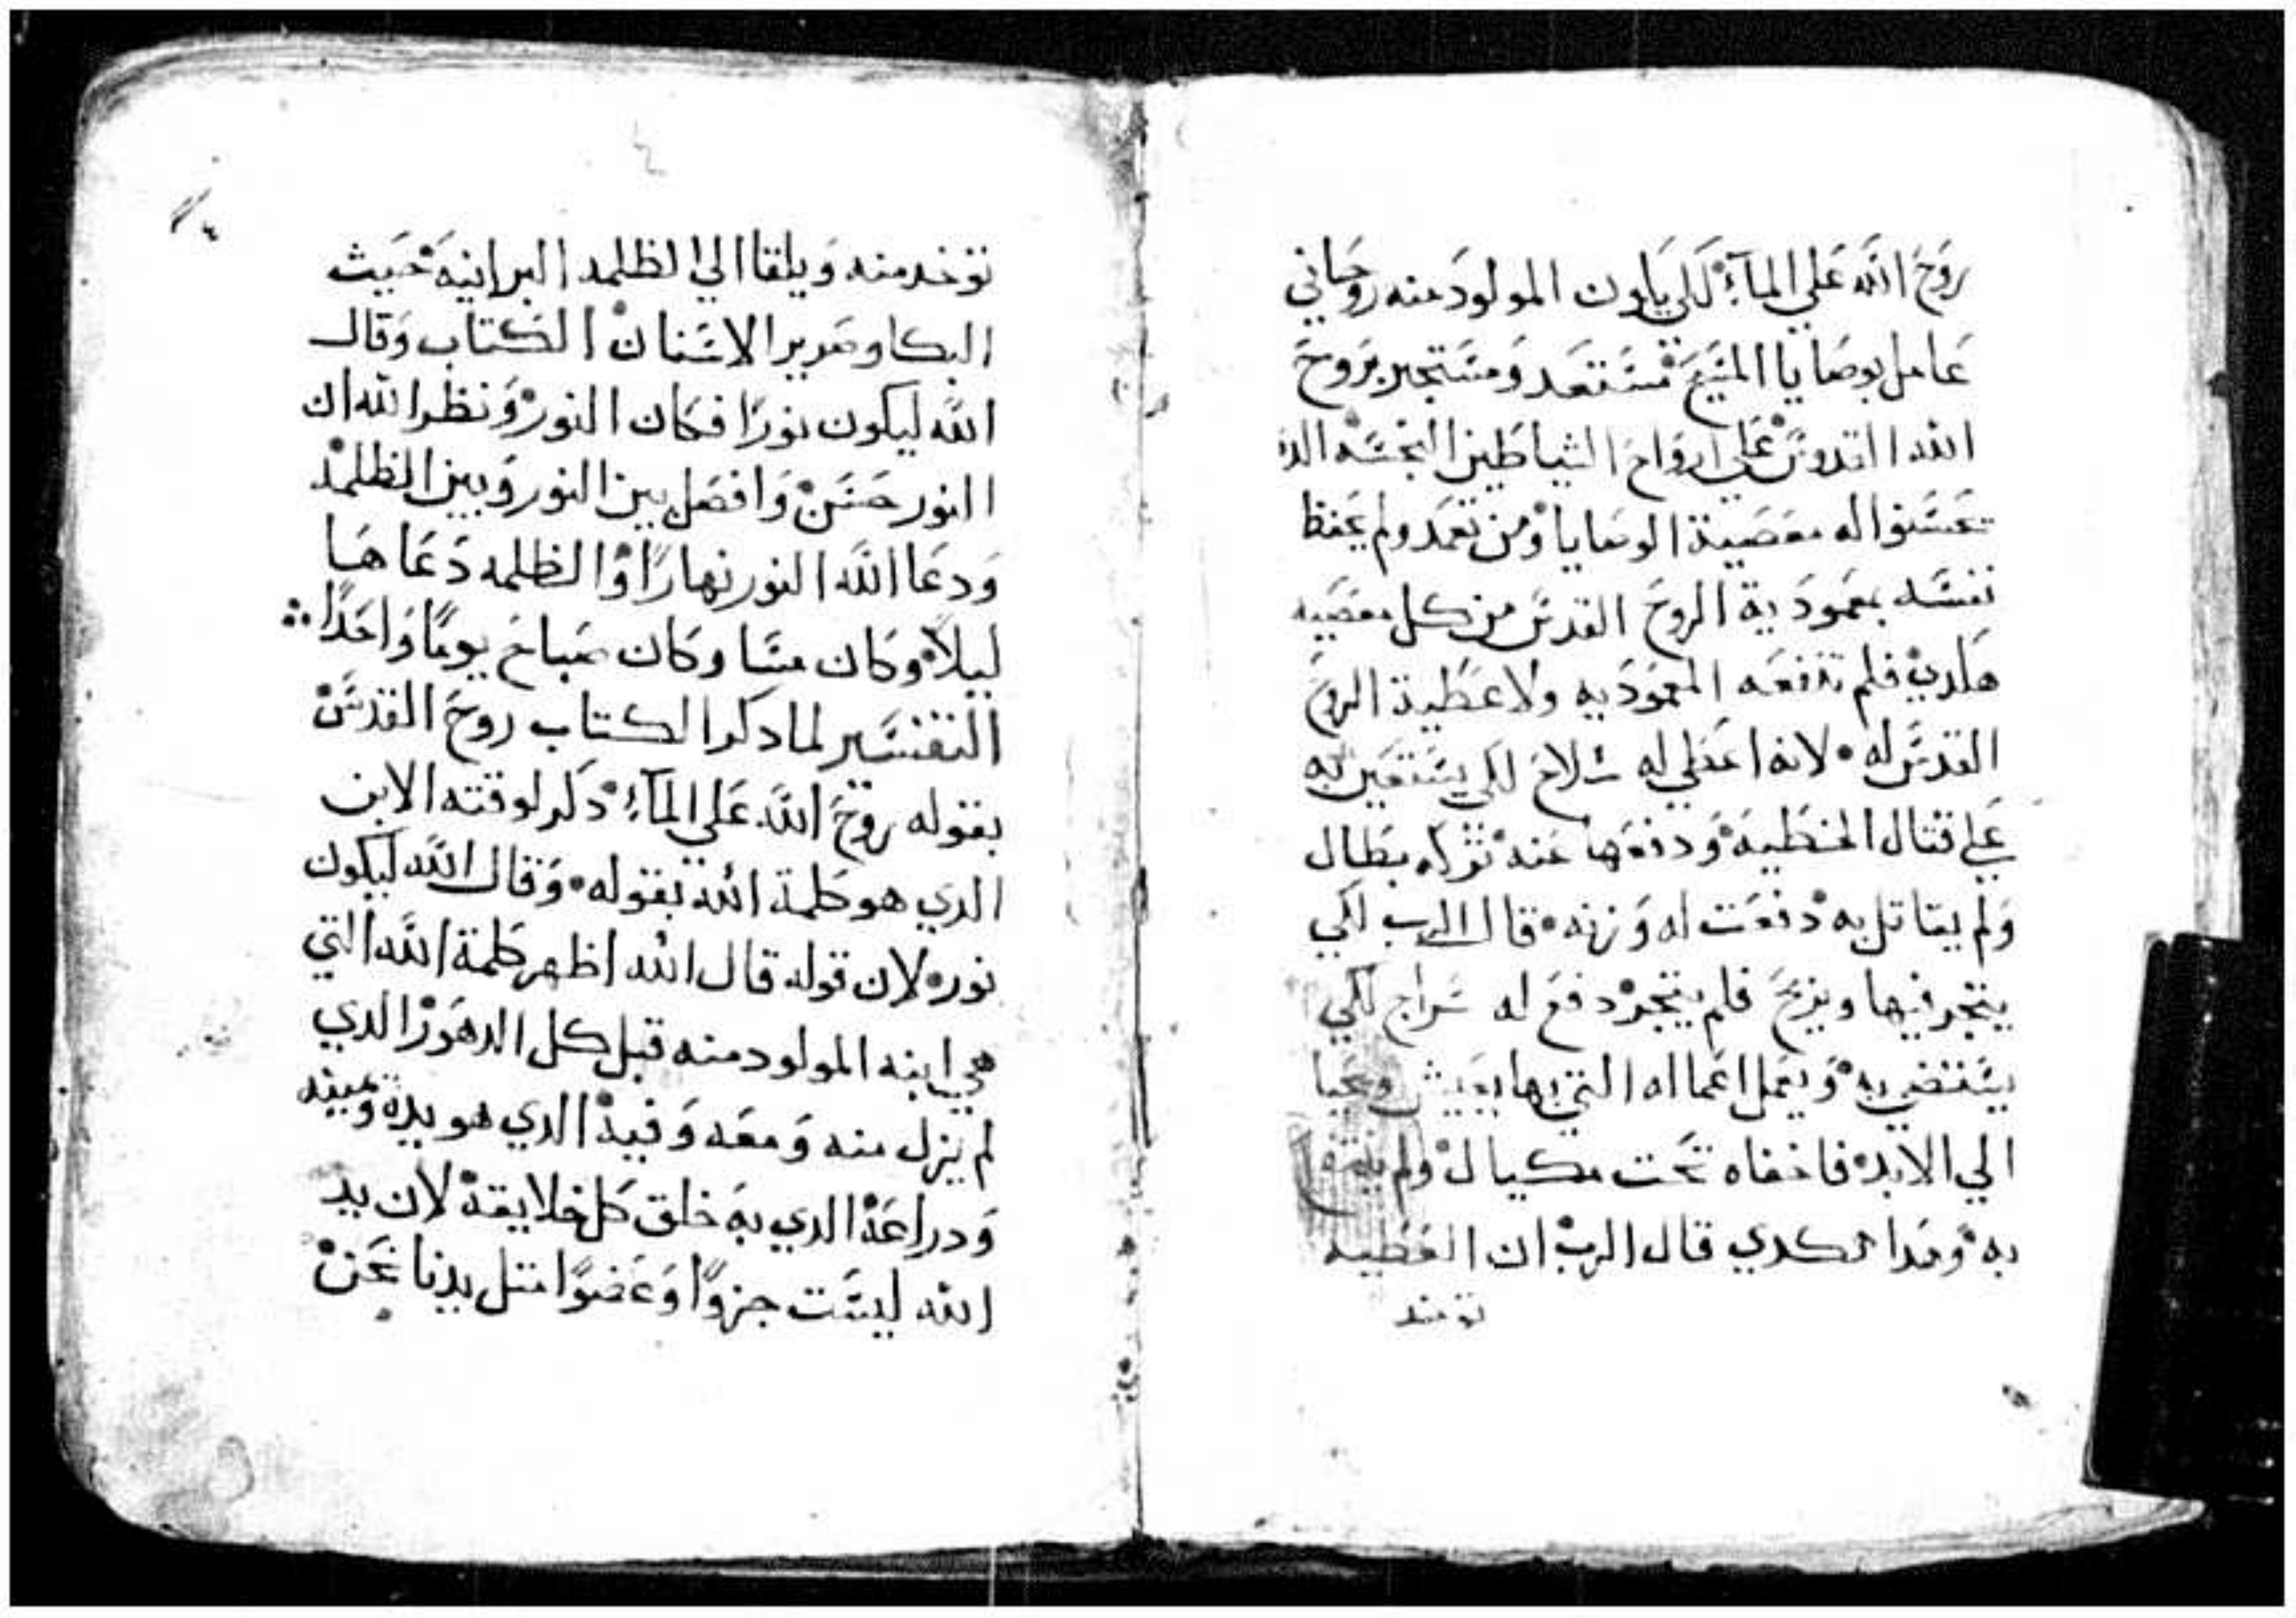 روح الله علي المآء لكي يكون المولود منه روحاني
عامل بوصايا المسيح مستعد ومستجير بروح
الله القدوس علي ارواح الشياطين النجسه الذ
تحسنوا له معصية الوصايا ومن تعمد ولم يحفظ
نفسه بمعمودية الروح القدس من كل معصيه
هكدي فلم تنفعه المعموديه ولا عطية الروح
القدس له لانه اعطي له سلاح لكي يستعين به
علي قتال الخطيه ودفعها عنه تركه بطال
ولم يقاتل به دفعت له وزنه قال الرب لكي
يتجر فيها ويربح فلم يتجر دفع له سراج لكي
يستضي به ويعمل اعماله التي بها يعيش ويحيا
الي الابد فاخفاه تحت مكيال ولم
به وهدا هكدي قال الرب ان العطيه
توخد منه
٤
توخد منه ويلقا الي الظلمه البرانيه حيث
البكا وصرير الاسنان الكتاب وقال
الله ليكون نورًا فكان النور ونظر الله ان
النور حسن وافصل بين النور وبين الظلمه
ودعا الله النور نهارًا والظلمه دعاها
ليلاً وكان مسا وكان صباح يومًا واحدًا
التفسير لما دكر الكتاب روح القدس
بقوله روح الله علي المآء دكر لوقته الابن
الدي هو كلمة الله بقوله وقال الله ليكون
نور لان قوله قال الله اظهر كلمة الله التي
هي ابنه المولود منه قبل كل الدهور الدي
لم يزل منه ومعه وفيه الدي هو يده ويمينه
ودراعه الدي به خلق كل خلايقه لان يد
الله ليست جزوًا وعضوًا متل يدنا نحن